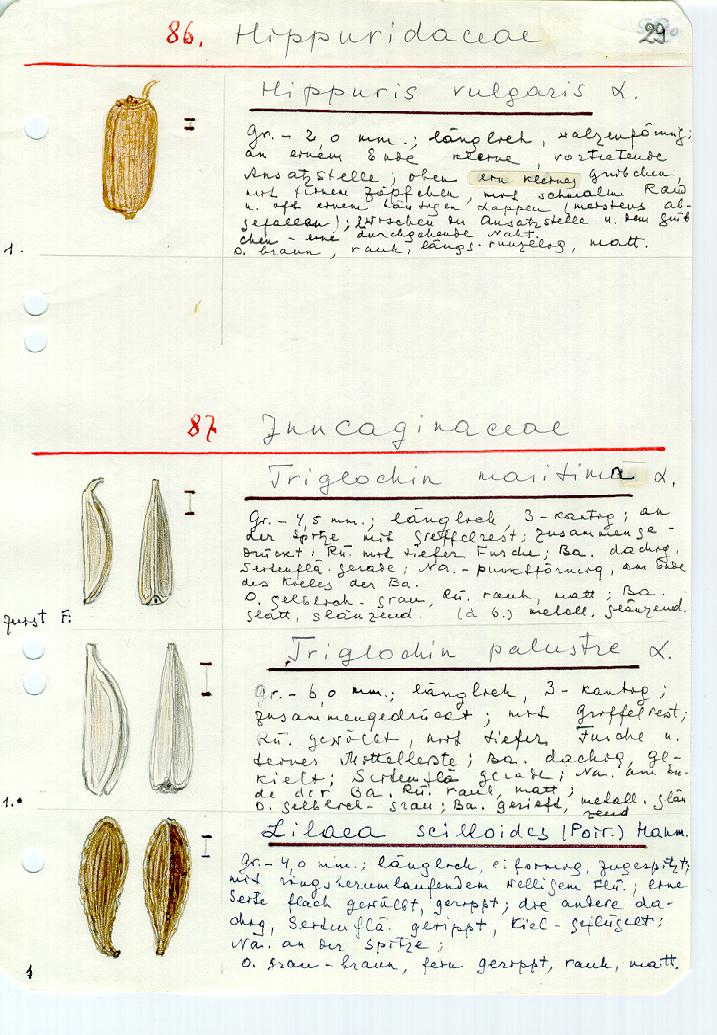 86. Hippuridaceae 29
Hippuris vulgaris L.
Gr. - 2,0 mm.; länglich, walzenförmig;
an einem Ende kleine, vortretende
Ansatzstelle; oben ein kleines Grübchen,
mit feinen Zäpfchen, mit schmalem Rand
u. oft einem häutigen Lappen (meistens ab-
gefallen); zwischen der Ansatzstelle u. dem Grüb
chen - eine durchgehende Naht.
O. braun, rauh, längs-runzelig, matt.
1.
87 Juncaginaceae
Triglochin maritima L.
Gr. - 4,5 mm.; länglich, 3-kantig; an
der Spitze mit Griffelrest; zusammenge-
drückt; Rü. mit tiefer Furche; Ba. dachig,
Seitenflä. gerade; Na. - punktförmig, am Ende
des Kieles der Ba.
O. gelblich-grau, Rü. rauh, matt; Ba.
glatt, glänzend. (a. b.) metall. glänzend.
Triglochin palustre L.
Gr. - 6,0 mm.; länglich, 3-kantig;
zusammengedrückt; mit Griffelrest;
Rü. gewölbt, mit tiefer Furche u.
Mittelleiste; Ba. dachig, ge-
kielt; Seitenflä gerade; Na. am En-
de der Ba. Rü. rauh, matt;
O. gelblich-grau; Ba. gerieft, metall. glän
zend
1.
Lilaea scilloides (Poir.) Haum.
Gr. - 4,0 mm.; länglich, eiförmig, zugespitzt;
mit ringsherumlaufendem welligem Flü.; eine
Seite flach gewölbt, gerippt; die andere da-
chig, Seitenflä. gerippt, Kiel-geflügelt;
Na. an der Spitze;
O. grau-braun, fein gerippt, rauh, matt.
1